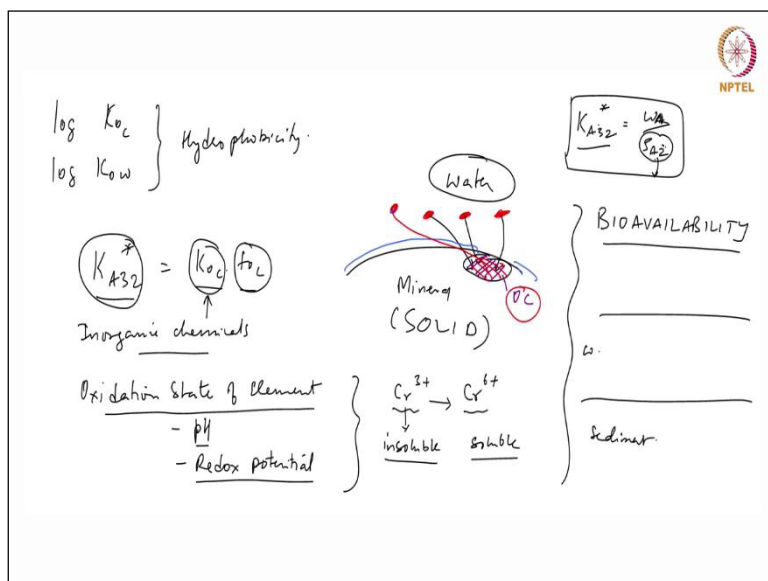 NPTEL
log Koc
log Kow
Hydrophobicity.
K*A32 = WA
ρA2
Water
BIOAVAILABILITY
K*A32 = Koc foc
Mineral
(SOLID)
OC
Inorganic chemicals
Oxidation State of Element
- pH
- Redox potential
Cr3+ → Cr6+
insoluble soluble
w.
Sediment.